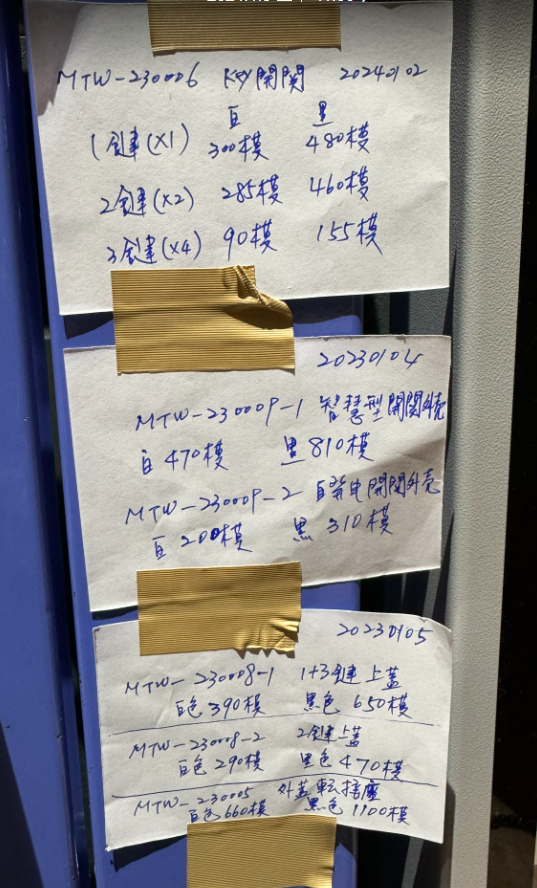 MTW-230006 KEY開関 20240102
白 黒
1鍵(x1) 300模 480模
2鍵(x2) 285模 460模
3鍵(x4) 90模 155模
20230104
MTW-230009-1 智慧型開関外壳
白 470模 黒 810模
MTW-230009-2 自發电開関外壳
白 200模 黒 310模
20230105
MTW-230008-1 1+3鍵上蓋
白色 390模 黒色 650模
MTW-23008-2 2鍵上蓋
白色 290模 黒色 470模
MTW-230005 外蓋転接座
白色 660模 黒色 1100模